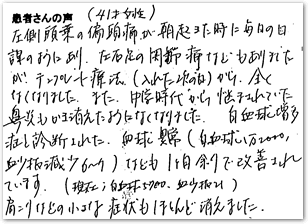 患者さんの声 (41才女性)
左側頭葉の偏頭痛が朝起きた時に毎日の日
課のように割、左右足の関節痛なども
が、テンプレート療法(入れた次の日)から、全く
なくなりました。また、中学時代から悩まされていた
鼻炎もかき消えたようになくなりました。白血球増多
症と診断された、血球異常(白血球12000、
血小板減少)なども1ヶ月余りで改善され
ています。(現在;白血球5700、血小板21)
肩こりなどの小さな症状もほとんど消えました。